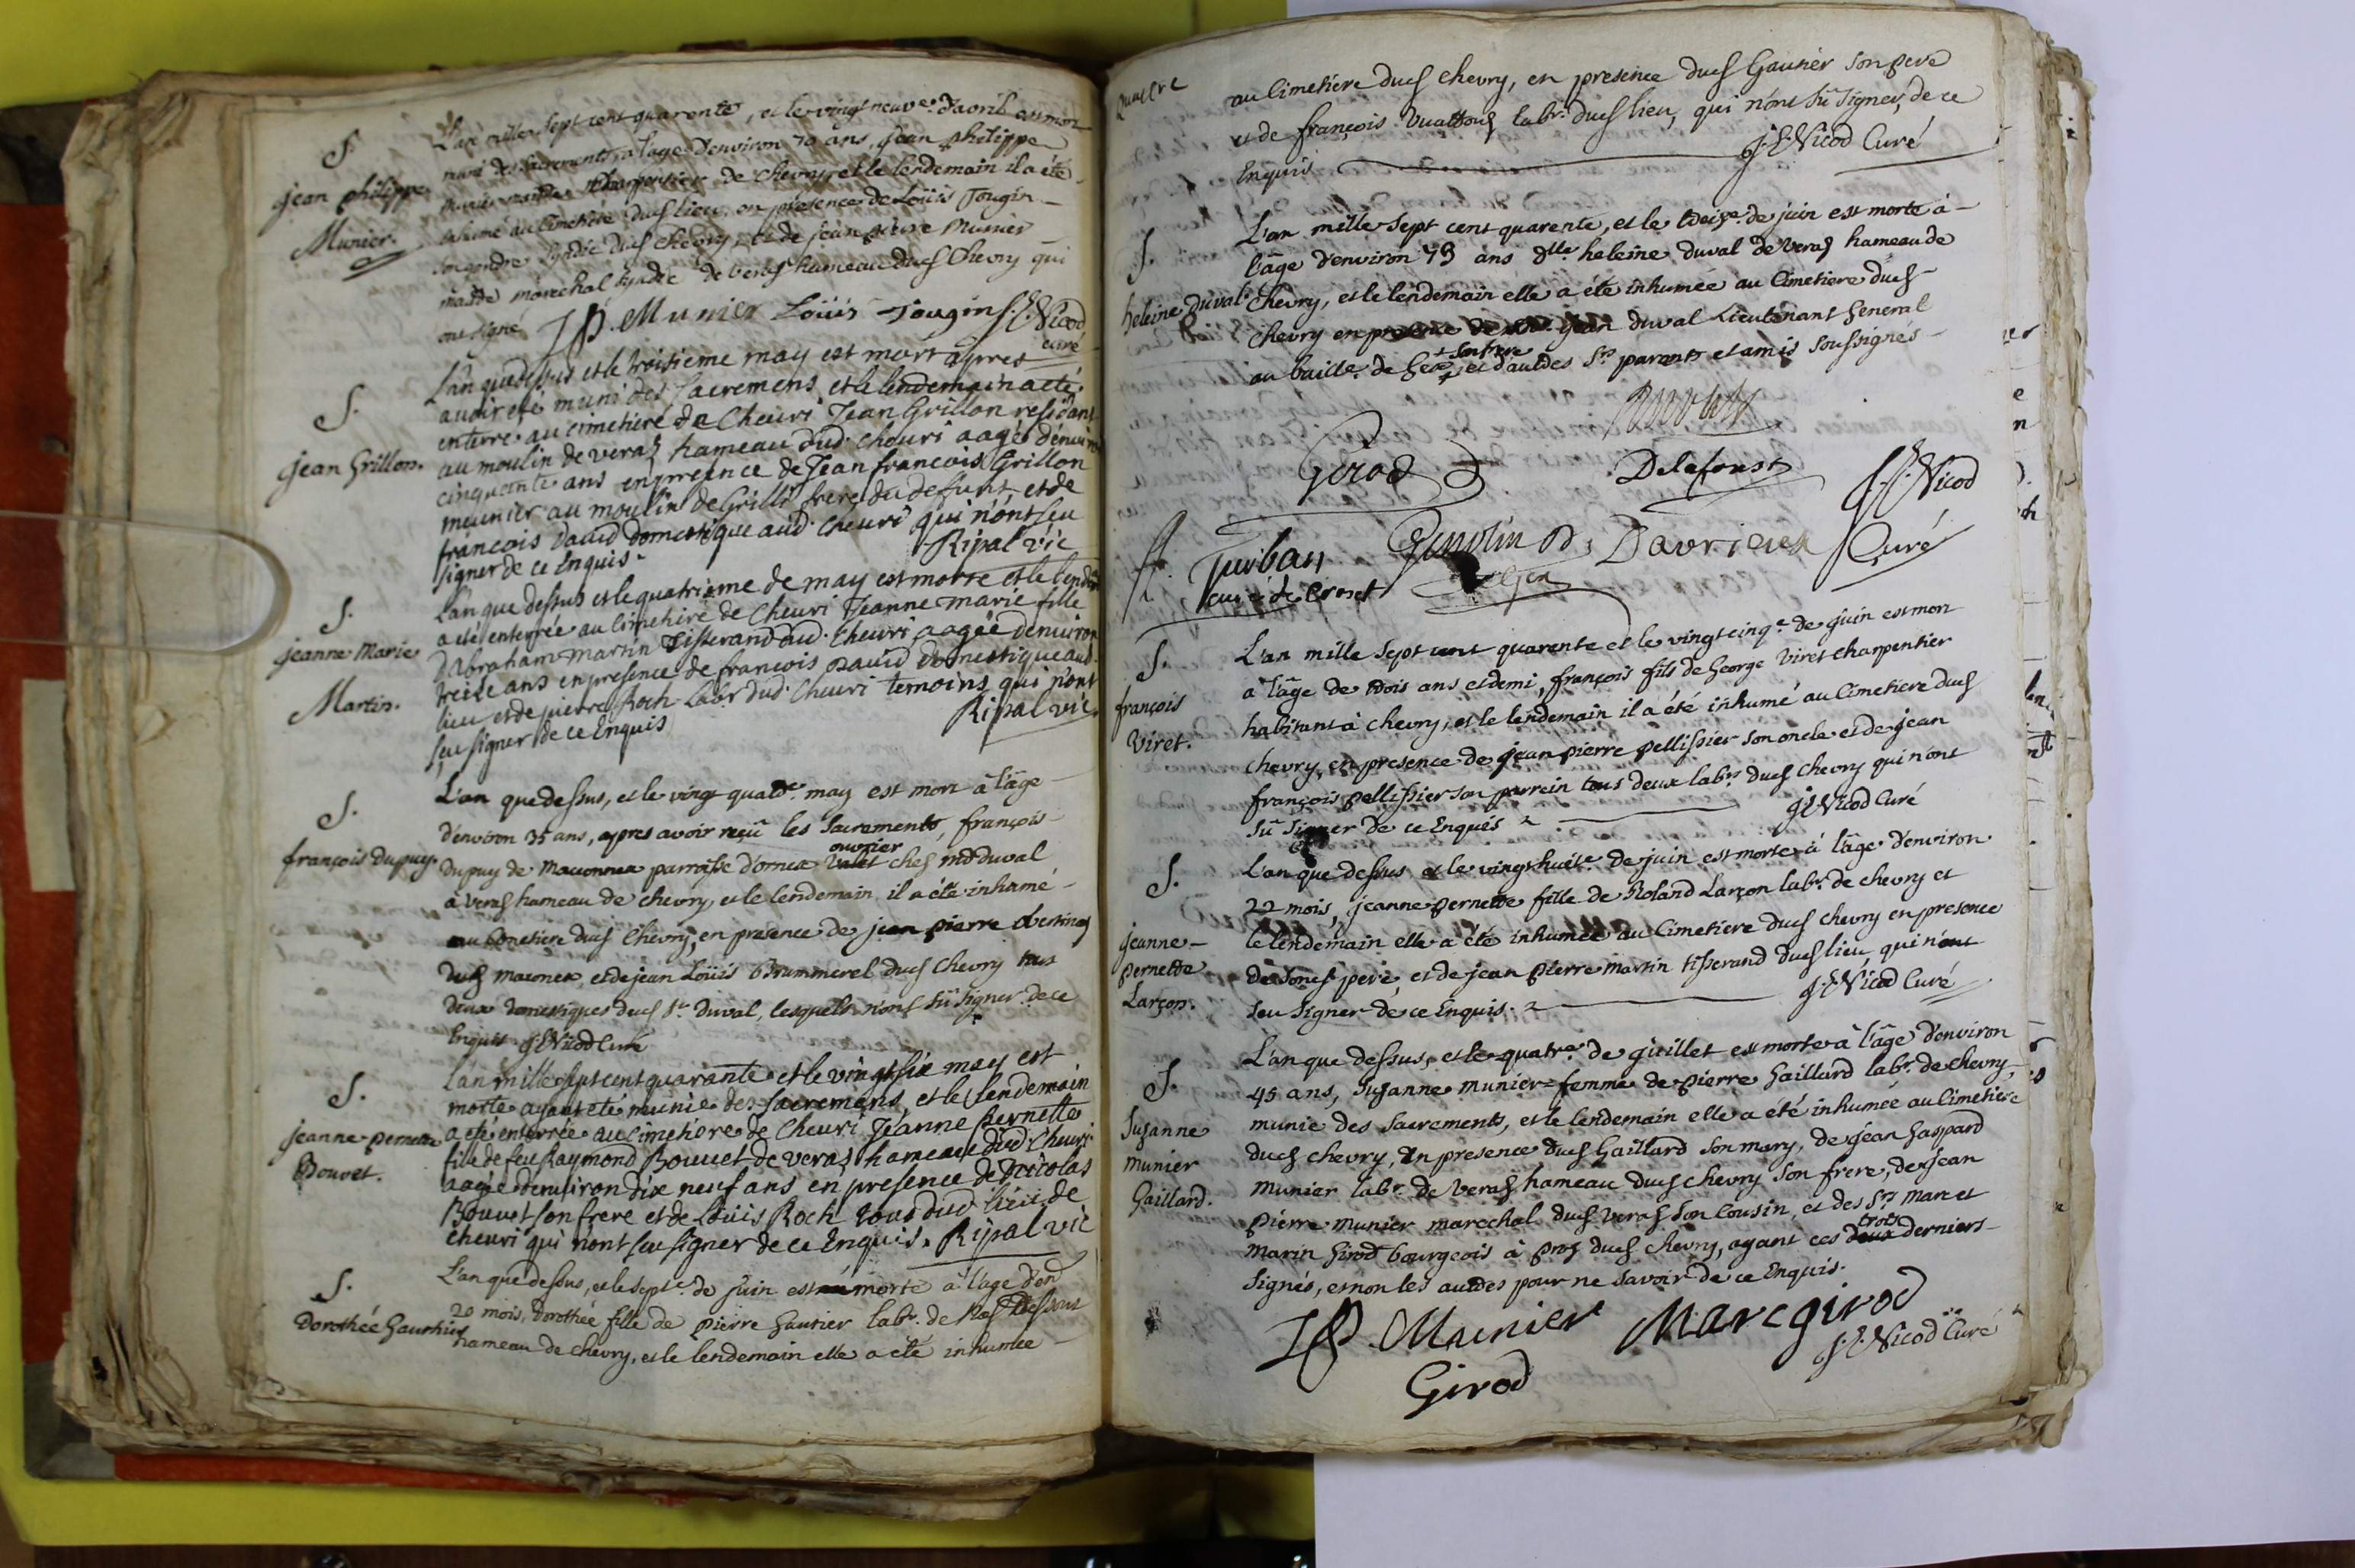 S.
jean philippe
Munier.
L'an mille sept cent quarente, et le vingt neuve. d'avril est mort
muni des sacrements, a l'age d'environ 70 ans, jean philippe
munier charpentier de chevry et le lendemain il a été
inhumé au cimetière dud lieu, en présence de Loüis Tougin
son gendre syndic dud chevry, et de jean pierre munier
maitre maréchal syndic de veraz hameau dud Chevry qui
ont signé JP. Munier Loüis Tougin J.C. Nicod
curé
S.
jean Grillon.
L'an que dessus et le troisieme may est mort apres
avoir eté muni des sacremens, et le lendemain a eté
enterré au cimetiere de Cheuri Jean Grillon residant
au moulin de veraz hameau dud. cheuri aagé d'enuiron
cinquante ans en presence de Jean francois Grillon
meunier au moulin de Grilli frere du defunt, et de
francois David domestique aud. cheuri qui n'ont sceu
signer de ce Enquis. Ripal vic
S.
jeanne Marie
Martin.
L'an que dessus et le quatrieme de may est morte et le lendn
a eté enterrée au cimetiere de Cheuri Jeanne marie fille
d'Abraham martin Tisserand aud. cheuri aagée denuiron
treize ans en presence de francois David domestique aud.
lieu et de pierre Roch Labr dud. Cheuri temoins qui n'ont
sçu signer de ce Enquis Ripal vic.
S.
françois Dupuy.
L'an que dessus, et le vingt quatre. may est mort à l'age
d'environ 35 ans, apres avoir reçû les sacrements, françois
ouvrier
Dupuy de Maconnex parroisse d'ornex valet chez mr duval
à veraz hameau de chevry, et le lendemain il a été inhumé
au cimetiere dud Chevry, en présence de jean pierre
dud maconex, et de jean Loüis Brummerel dud Chevry tous
deux domestiques dud Sr. Duval, lesquels n'ont sû signer de ce
Enquis J.C. Nicod Curé
S.
jeanne pernette
Bouvet.
L'an mille sept cent quarante et le vingt six may est
morte ayant eté munie des sacremens, et le lendemain
a eté enterrée au cimetiere de Cheuri Jeanne Pernette
fille de feu Raymond Bouuet de veraz hameau dud. Cheuri
aagée d'enuiron dix neuf ans en presence de Nicolas
Bouuet son frere et de Loüis Roch tous dud. lieu de
cheuri qui n'ont sceu signer de ce Enquis. Ripal vic
S.
Dorothée Gauthier
L'an que dessus, et le septe. de juin est morte à l'age d'en
20 mois, Dorothée fille de pierre Gautier labr. de Naz dessous
hameau de chevry, et le lendemain elle a été inhumée
au Cimetière dud chevry, en presence dud Gautier son pere
et de françois Vuattoux labr. dud lieu, qui n'ont sû signer, de ce
Enquis J.C. Nicod Curé
S.
heleine Duval
L'an mille sept cent quarente, et le treize. de juin est morte à
l'âge d'environ 73 ans dlle heleine duval de veraz hameau de
chevry, et le lendemain elle a été inhumée au Cimetiere dud
chevry en presence de Mr. jean duval Lieutenant General
+ son frere
au baille. de Gex + et d'autres Srs parents et amis soussignés
Girod
Delaforest
J.C. Nicod
Curé
Turban
curé de Crozet
S.
françois
Viret.
L'an mille sept cent quarente et le vingt cinqe. de juin est mort
à l'âge de trois ans et demi, françois fils de George Viret charpentier
habitant à chevry, et le lendemain il a été inhumé au Cimetiere dud
chevry, en presence de jean pierre pellissier son oncle et de jean
françois pellissier son parrein tous deux labrs. dud Chevry qui n'ont
sû signer de ce Enquis J.C. Nicod Curé
S.
jeanne
pernette
Larçon.
L'an que dessus et le vingt huite. de juin est morte à l'âge d'environ
22 mois, jeanne pernette fille de Roland Larçon labr. de chevry et
le lendemain elle a été inhumée au Cimetiere dud chevry en presence
de sond pere, et de jean pierre martin tisserand dud lieu qui n'ont
sçu signer de ce Enquis. J.C. Nicod Curé
S.
Suzanne
munier
Gaillard.
L'an que dessus, et le quatre. de juillet est morte à l'âge d'environ
45 ans, Suzanne munier femme de pierre Gaillard labr. de chevry,
munie des sacrements, et le lendemain elle a été inhumée au Cimetiere
dud chevry, en presence dud Gaillard son mary, de jean Gaspard
munier labr. de veraz hameau dud chevry son frere, de jean
pierre munier marechal dud veraz son Cousin, et des Srs marc et
trois
marin Girod bourgeois à proz dud chevry, ayant ces deux derniers
signés, et non les autres pour ne savoir de ce Enquis.
JP. Munier Marc girod
J.C. Nicod Curé
Girod